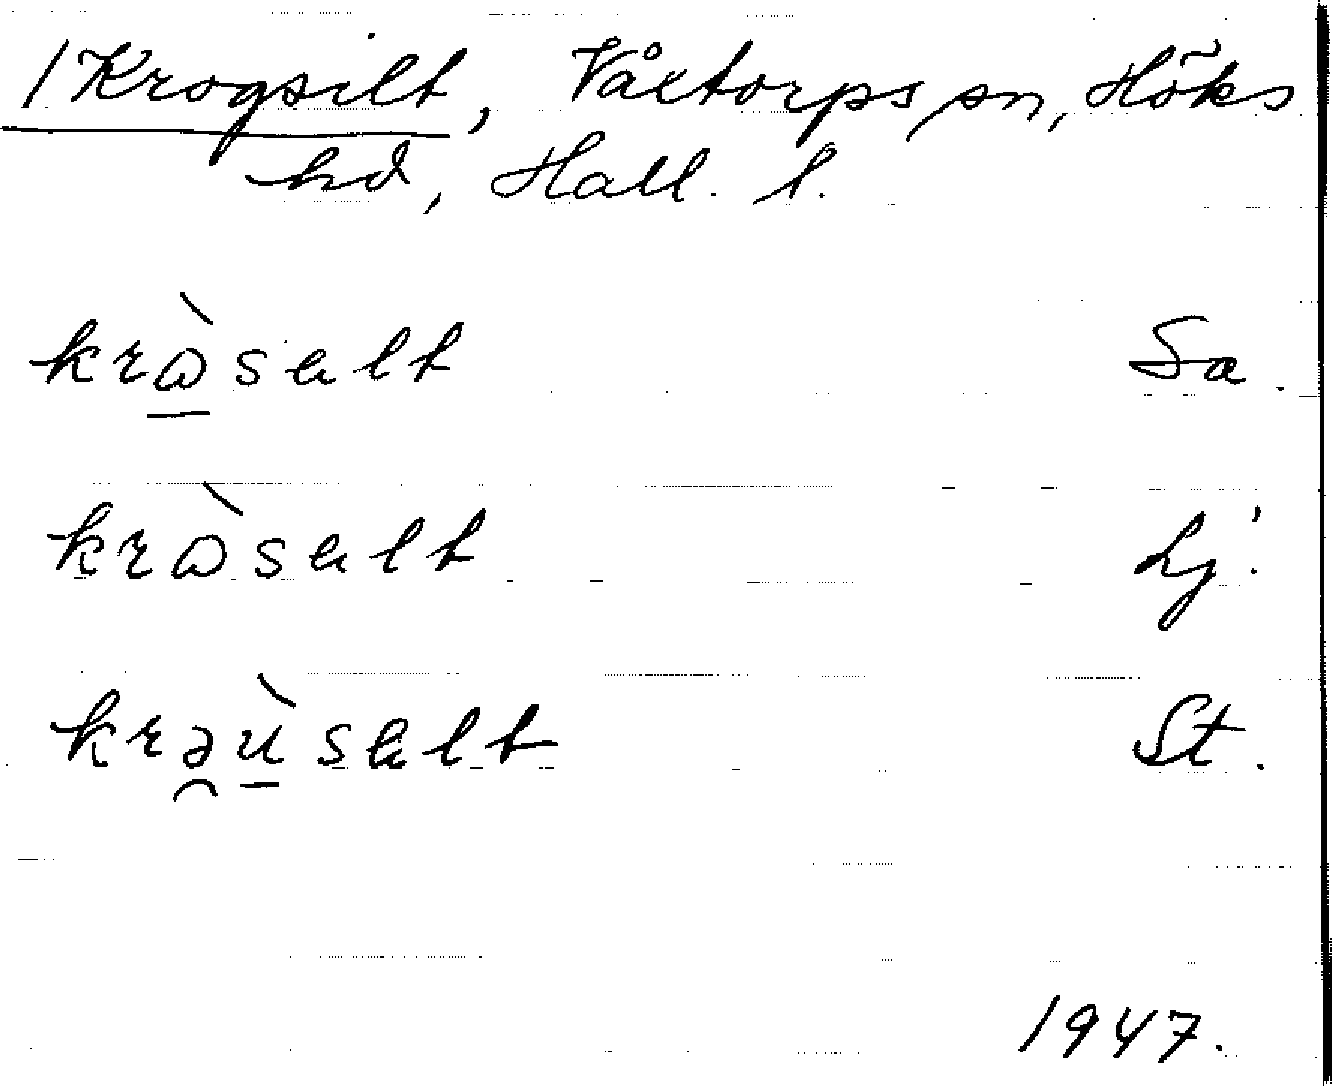 /Krogsilt, Våxtorps sn, Höks
hd, Hall. l.
krꙍ̀salt Sa.
krꙍ̀salt Lj.
krəùsalt St.
1947.